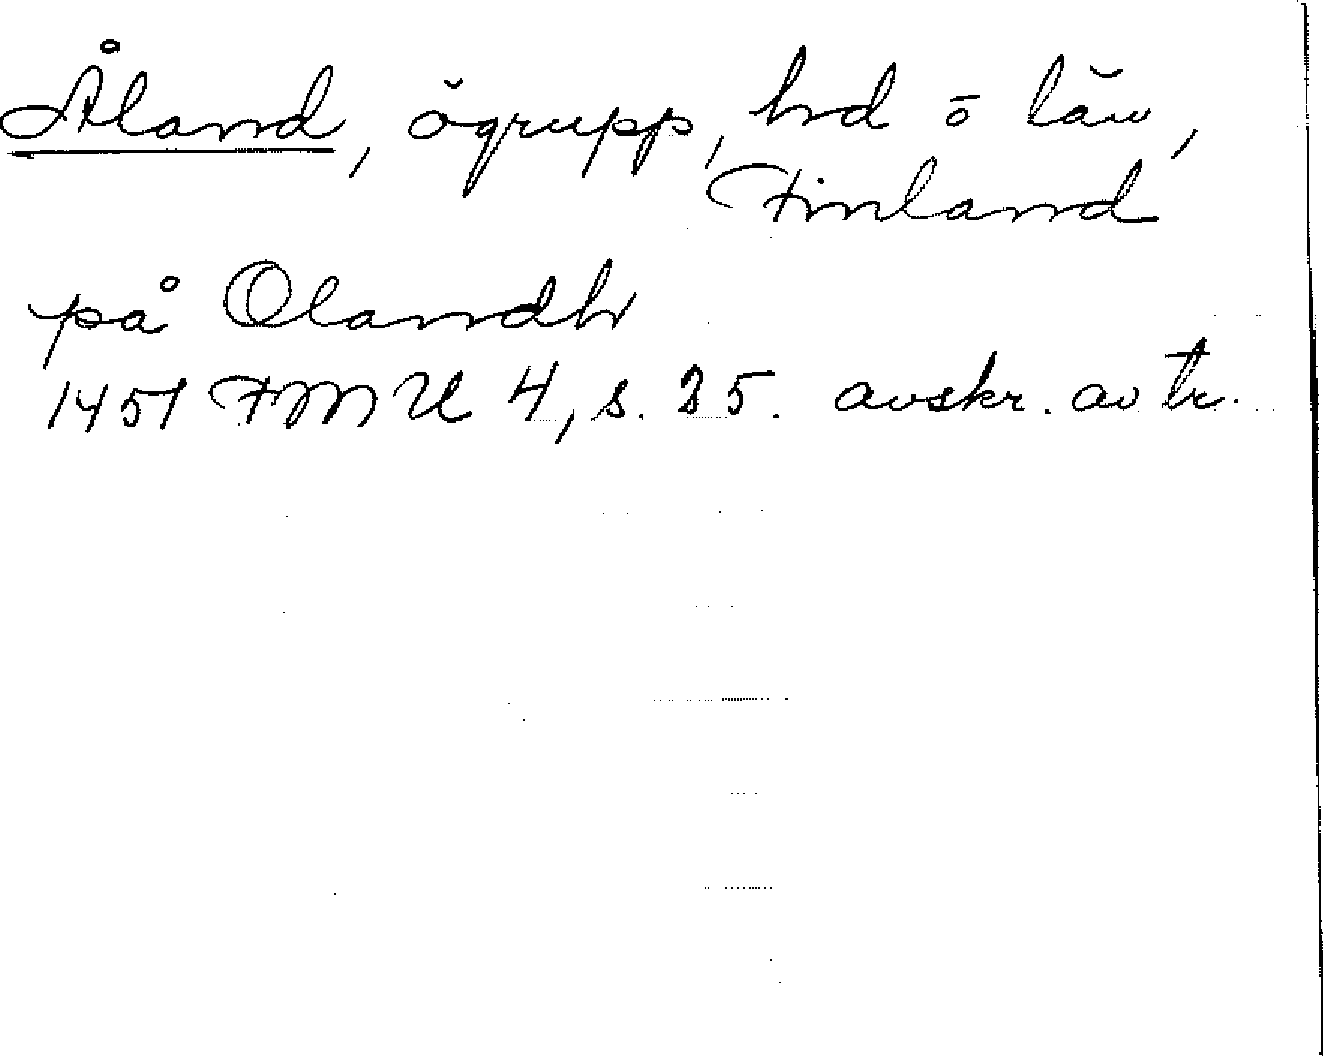 Åland, ögrupp, hd o län,
Finland
på Olandh
1451 FMU 4, s. 35. avskr. av tr.